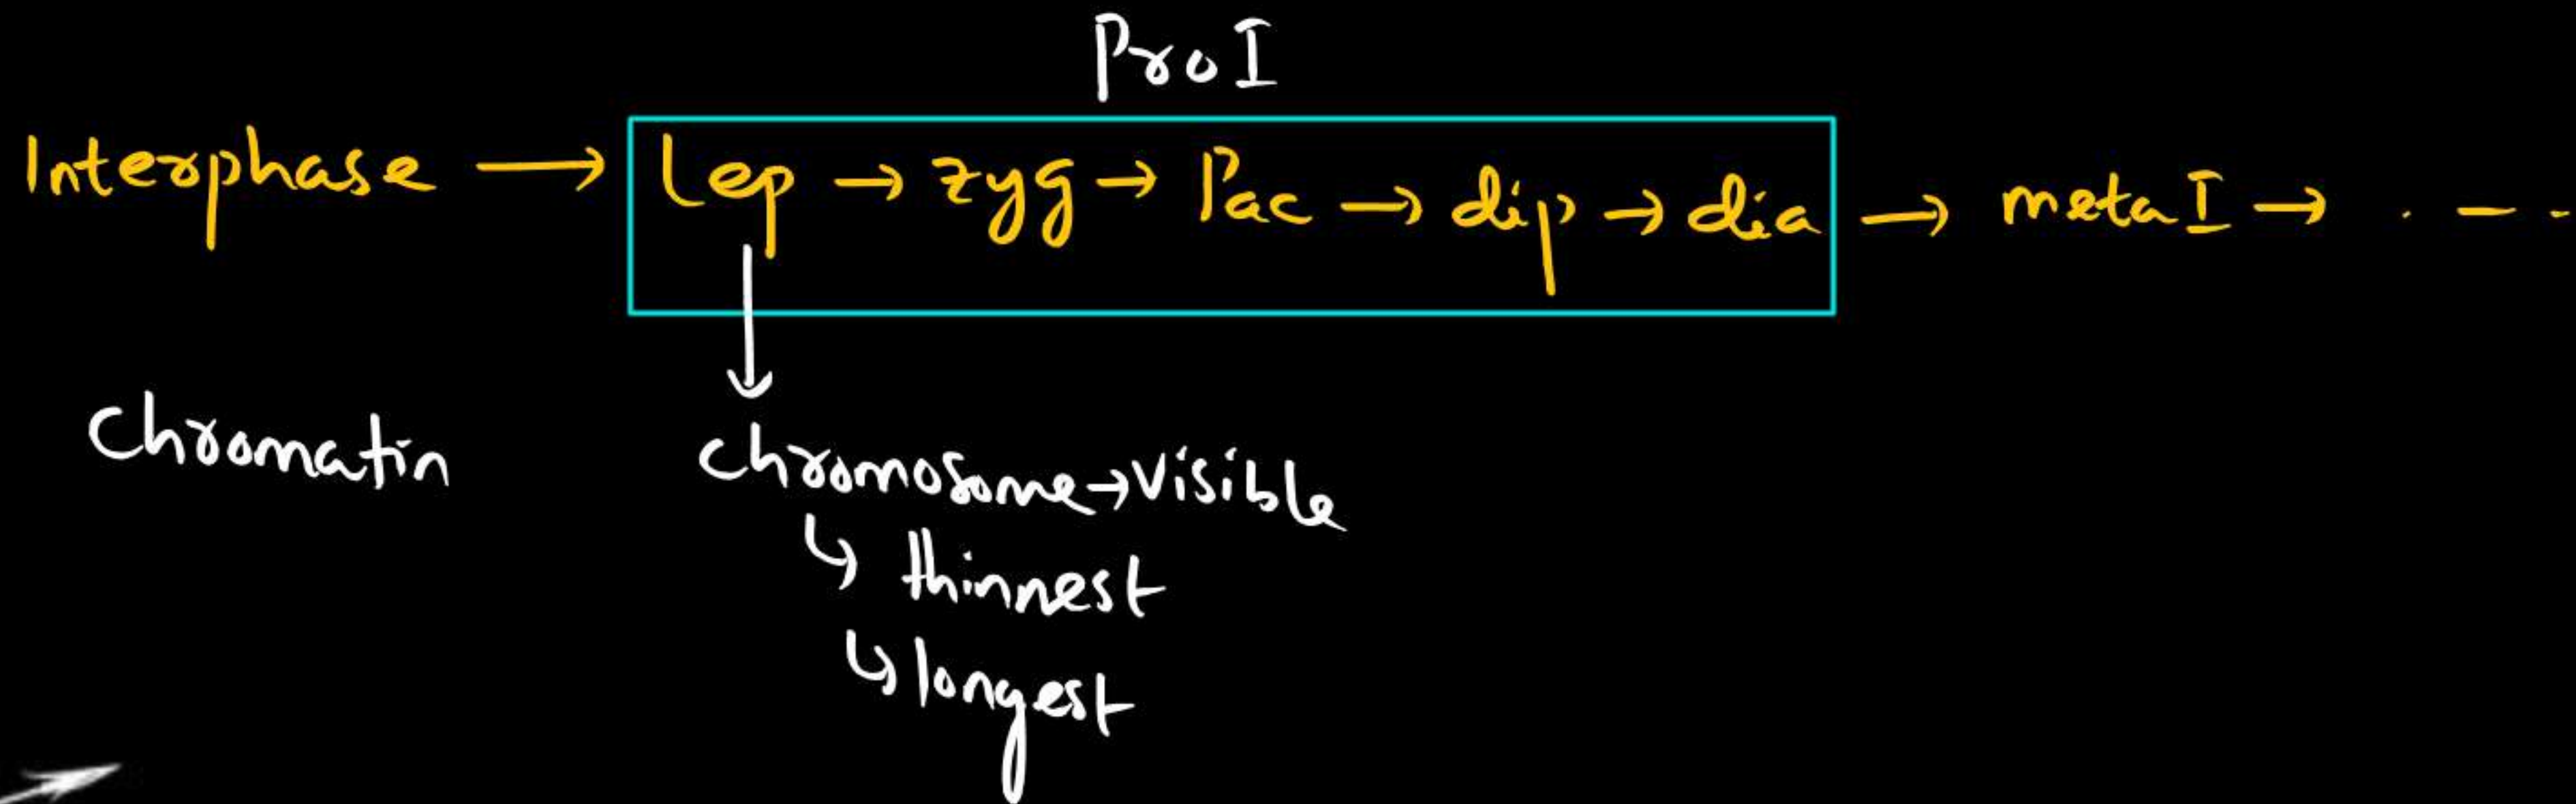 ProI
Interphase → Lep → zyg → Pac → dip → dia → meta I → . - -
Chromatin
Chromosome → Visible
↳ thinnest
↳ longest